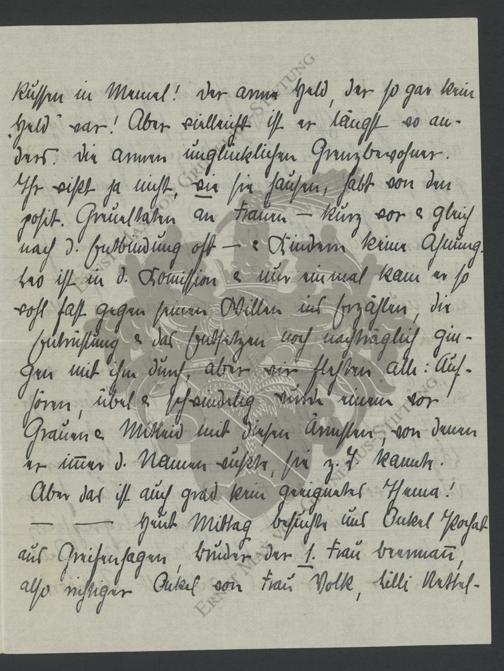 Russen in Memel! Der arme Held, der so gar kein
"Held" war! Aber vielleicht ist er längst wo an-
ders. Die armen unglücklichen Grenzbewohner.
Ihr wißt ja nicht wie sie hausen, habt von den
posit. Greueltaten an Frauen – kurz vor & gleich
nach d. Entbindung oft – & Kindern keine Ahnung.
Leo ist in d. Komission & nur einmal kam er so
wohl fast gegen seinen Willen ins Erzählen, die
Entrüstung & das Entsetzen noch nachträglich gin-
gen mit ihm durch, aber wir flehten alle: Auf-
hören, übel & schwindelig wurde einem vor
Grauen & Mitleid mit diesen Ärmsten, von denen
er immer d. Namen wußte, sie z. T. kannte.
Aber das ist auch grad kein geeignetes Thema!
— — Heut Mittag besuchte uns Onkel
aus Greifenhagen, Bruder der 1. Frau
also richtiger Onkel von Frau Volk, Lilli Nettel-
ERNST MAGNUS STIFTUNG